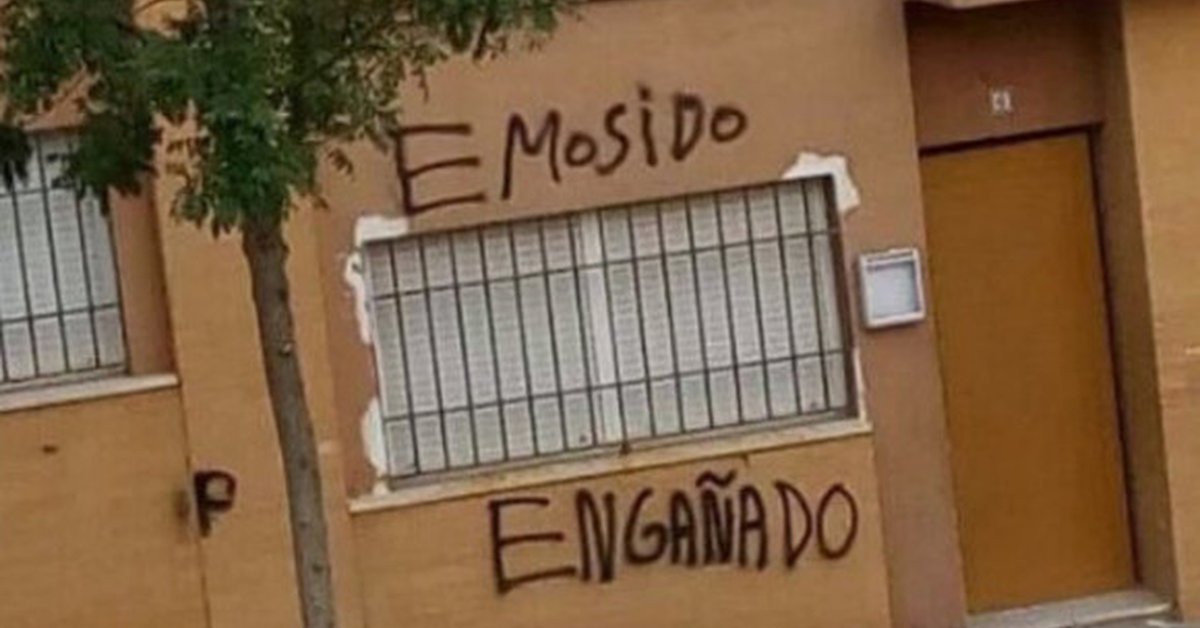 EMOSiDO
ENGAÑADO
P
4